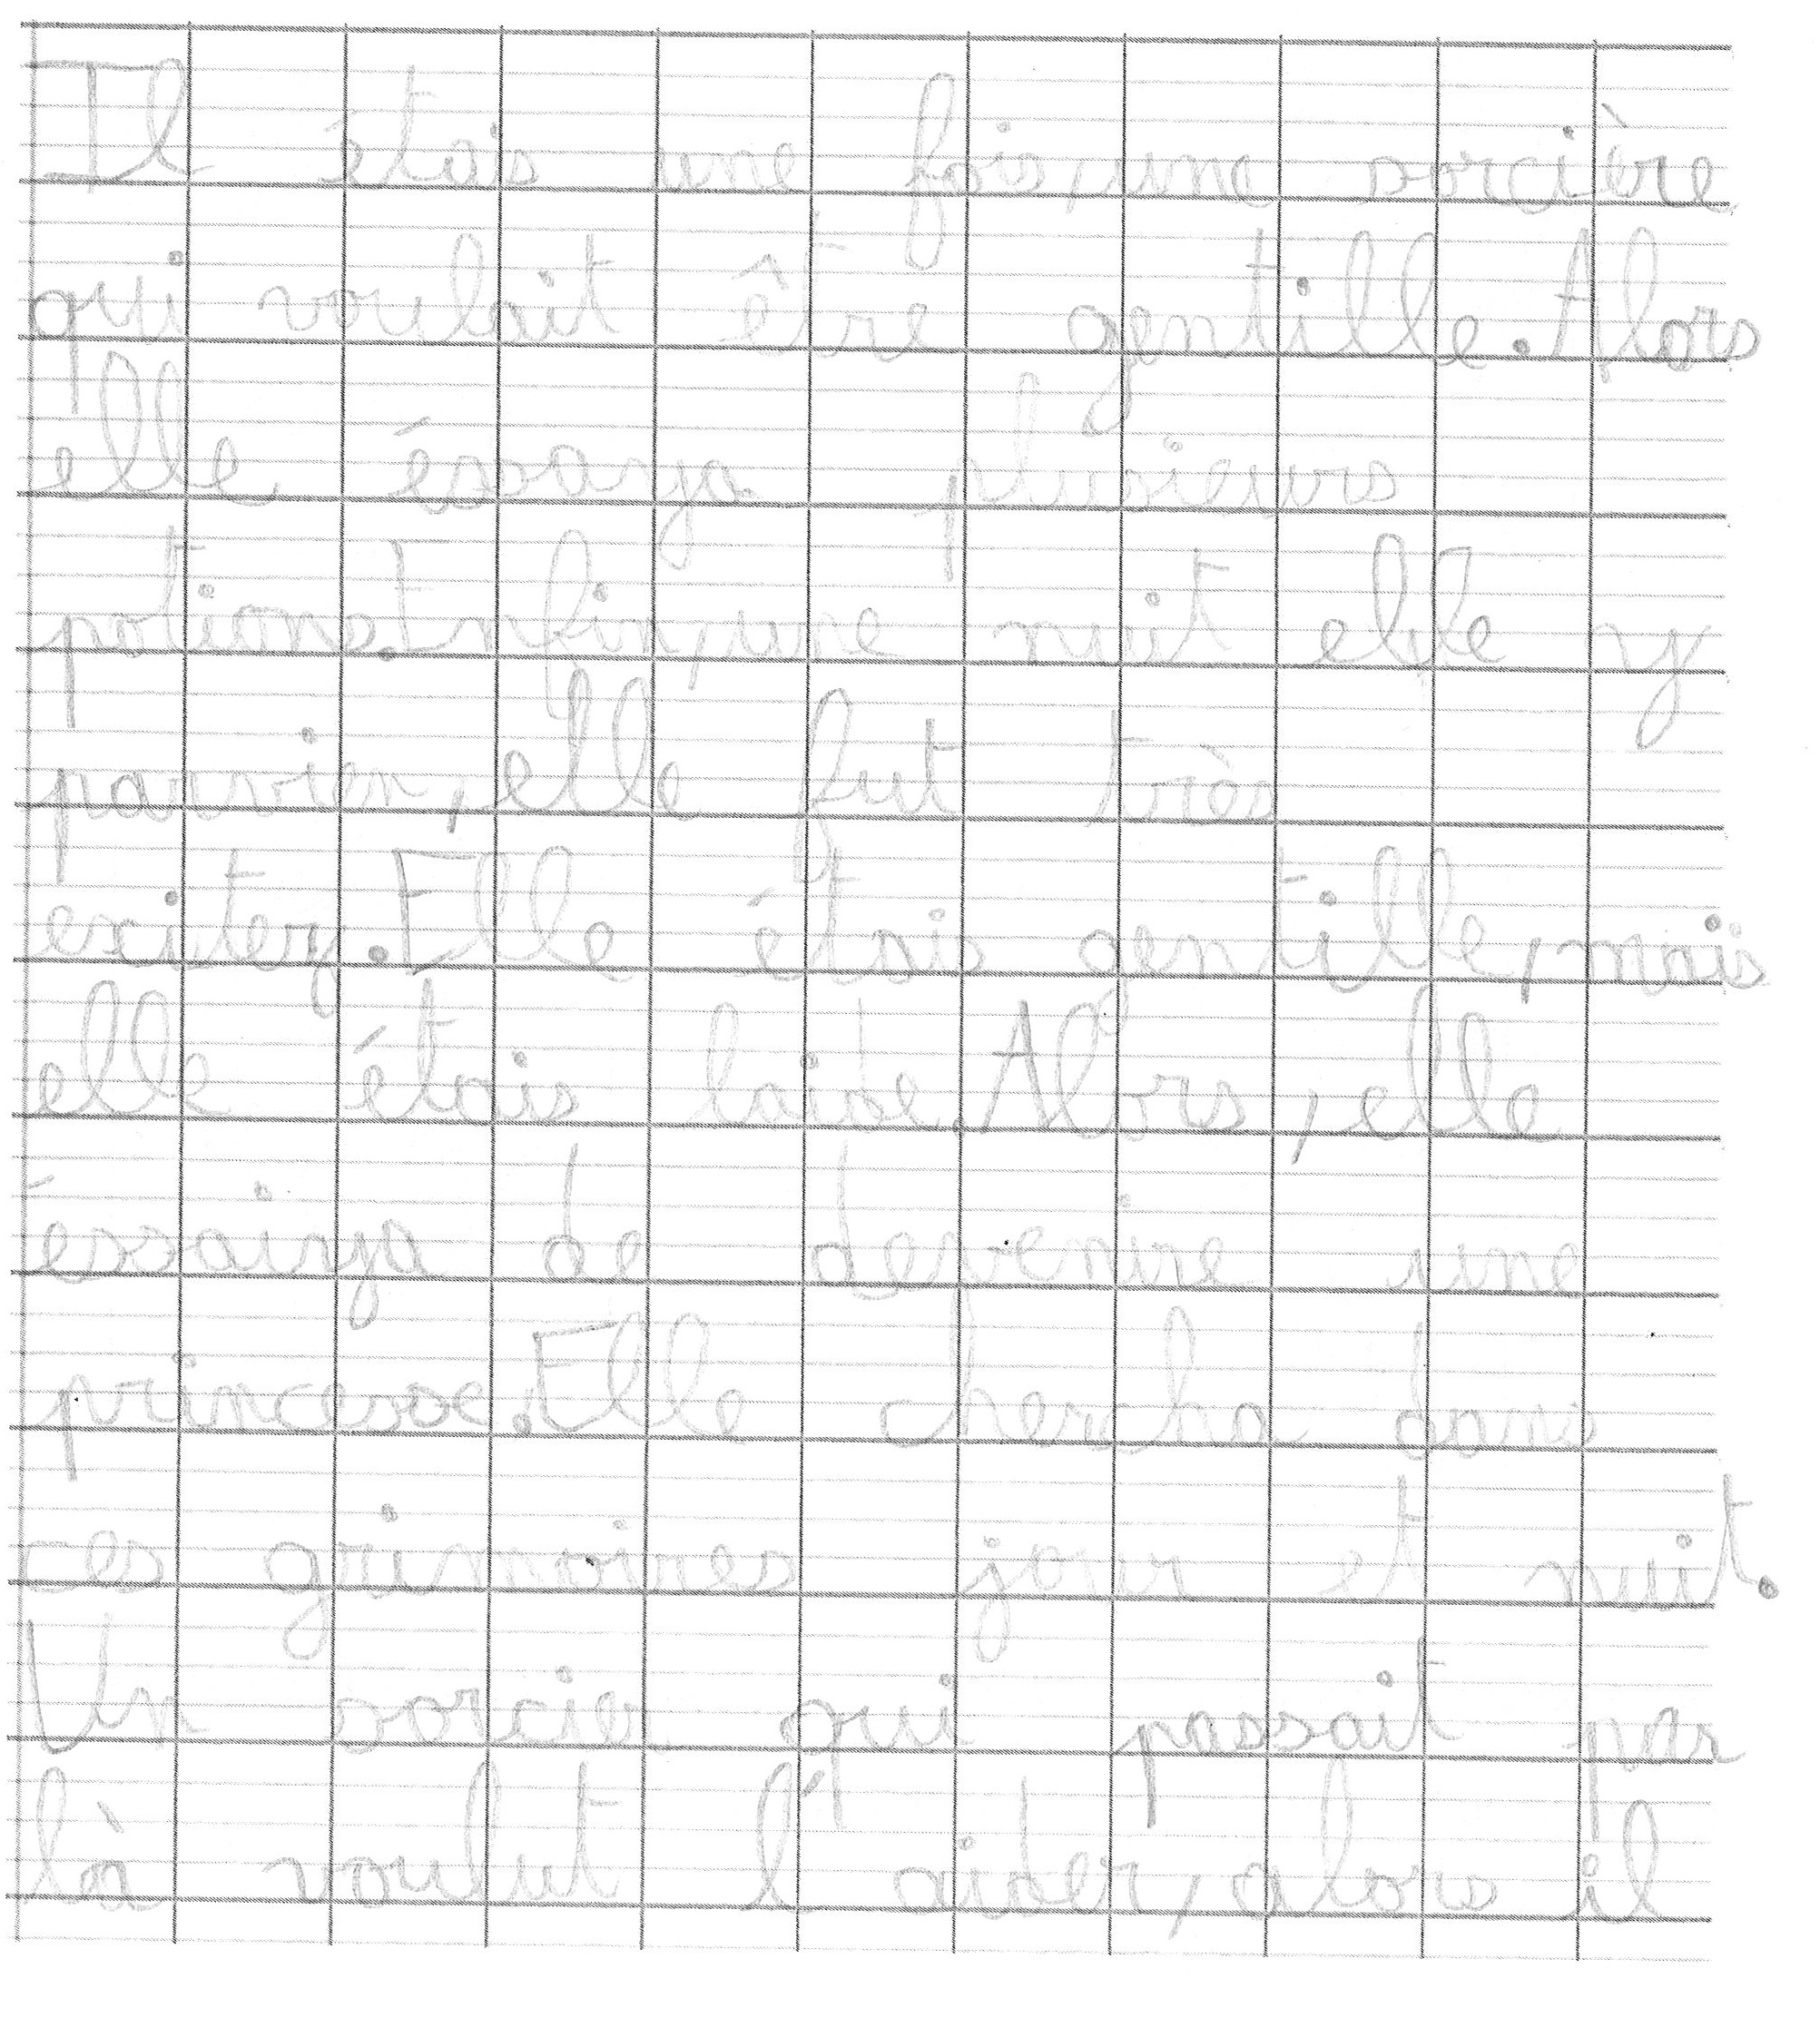 Il étais une fois, une sorcière
qui voulait être gentille. Alors
elle éssaya plusieurs
potions. Enfin, une nuit elle y
parvien, elle fut très
exciter. Elle étais gentille, mais
elle étais laide. Alors, elle
éssaiya de devenire une
princesse. Elle chercha dans
ces grimoires jour et nuit.
Un sorcier qui passait par
là voulut l'aider, alors il